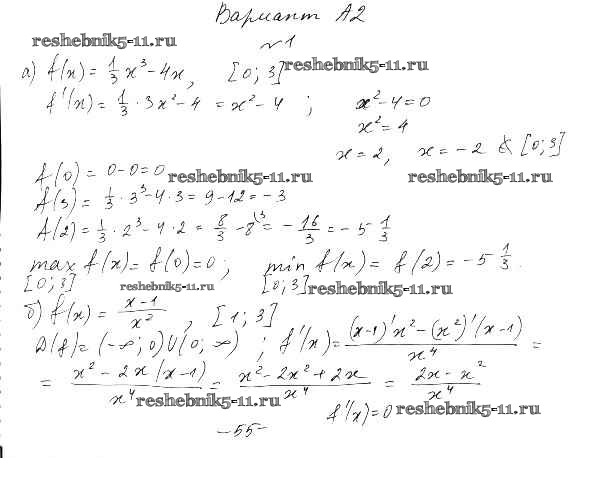 Вариант А2
reshebnik5-11.ru
№1
а) f(x) = 1/3 x³ - 4x, [0; 3] reshebnik5-11.ru
f'(x) = 1/3 · 3x² - 4 = x² - 4 ; x² - 4 = 0
x² = 4
x = 2, x = -2 ∉ [0; 3]
f(0) = 0 - 0 = 0 reshebnik5-11.ru reshebnik5-11.ru
f(3) = 1/3 · 3³ - 4 · 3 = 9 - 12 = -3
f(2) = 1/3 · 2³ - 4 · 2 = 8/3 - 8\³ = -16/3 = -5 1/3
max f(x) = f(0) = 0 ; min f(x) = f(2) = -5 1/3.
[0; 3] reshebnik5-11.ru [0; 3] reshebnik5-11.ru
б) f(x) = (x-1)/x², [1; 3]
D(f) = (-∞; 0) U (0; ∞) ; f'(x) = ((x-1)'x² - (x²)'(x-1))/x⁴ =
= (x² - 2x(x-1))/x⁴ = (x² - 2x² + 2x)/x⁴ = (2x - x²)/x⁴
reshebnik5-11.ru f'(x) = 0 reshebnik5-11.ru
-55-